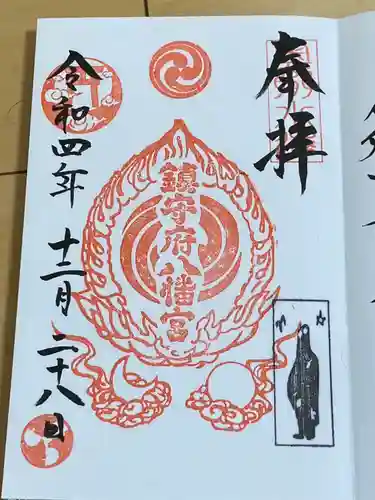 奉拝
鎮守府八幡宮
令和四年十二月二十八日